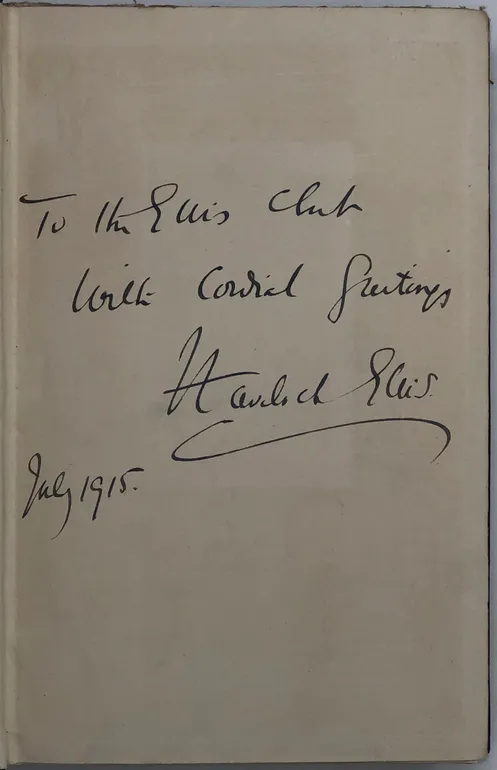 To the Ellis Club
With Cordial Greetings
Havelock Ellis.
July 1915.